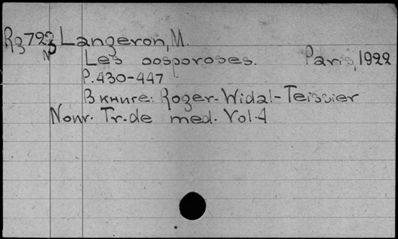 Rg723 Langeron, M.
N Les oosporoses. Paris, 1922
P. 430-447
В книге: Roger-Widal-Teissier
Nouv. Tr. de med. Vol 4